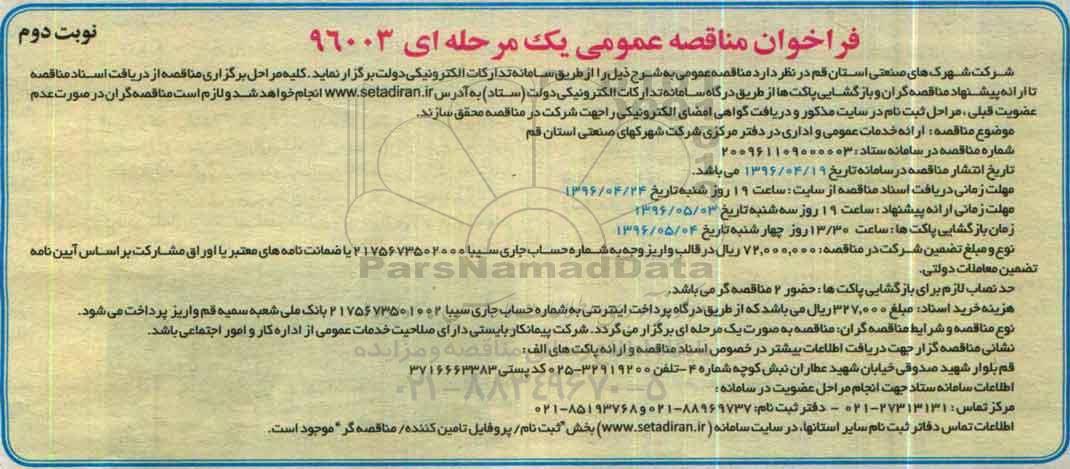 نوبت دوم
فراخوان مناقصه عمومی یک مرحله ای ۹۶۰۰۳
شرکت شهرک های صنعتی استان قم در نظر دارد مناقصه عمومی به شرح ذیل را از طریق سامانه تدارکات الکترونیکی دولت برگزار نماید. کلیه مراحل برگزاری مناقصه از دریافت اسناد مناقصه
تا ارائه پیشنهاد مناقصه گران و بازگشایی پاکت ها از طریق درگاه سامانه تدارکات الکترونیکی دولت (ستاد) به آدرس www.setadiran.ir انجام خواهد شد و لازم است مناقصه گران در صورت عدم
عضویت قبلی، مراحل ثبت نام در سایت مذکور و دریافت گواهی امضای الکترونیکی را جهت شرکت در مناقصه محقق سازند.
موضوع مناقصه: ارائه خدمات عمومی و اداری در دفتر مرکزی شرکت شهرکهای صنعتی استان قم
شماره مناقصه در سامانه ستاد: ۲۰۰۹۶۱۱۰۹۰۰۰۰۰۳
تاریخ انتشار مناقصه در سامانه تاریخ ۱۳۹۶/۰۴/۱۹ می باشد.
مهلت زمانی دریافت اسناد مناقصه از سایت: ساعت ۱۹ روز شنبه تاریخ ۱۳۹۶/۰۴/۲۴
مهلت زمانی ارائه پیشنهاد: ساعت ۱۹ روز سه شنبه تاریخ ۱۳۹۶/۰۵/۰۳
زمان بازگشایی پاکت ها: ساعت ۱۳/۳۰ روز چهارشنبه تاریخ ۱۳۹۶/۰۵/۰۴
نوع و مبلغ تضمین شرکت در مناقصه: ۷۲,۰۰۰,۰۰۰ ریال در قالب واریز وجه به شماره حساب جاری سیبا ۲۱۷۵۶۷۳۵۰۲۰۰۰ یا ضمانت نامه های معتبر یا اوراق مشارکت براساس آیین نامه
تضمین معاملات دولتی.
حد نصاب لازم برای بازگشایی پاکت ها: حضور ۲ مناقصه گر می باشد.
هزینه خرید اسناد: مبلغ ۳۲۷,۰۰۰ ریال می باشد که از طریق درگاه پرداخت اینترنتی به شماره حساب جاری سیبا ۲۱۷۵۶۷۳۵۰۱۰۰۲ بانک ملی شعبه سمیه قم واریز پرداخت می شود.
نوع مناقصه و شرایط مناقصه گران: مناقصه به صورت یک مرحله ای برگزار می گردد. شرکت پیمانکار بایستی دارای صلاحیت خدمات عمومی از اداره کار و امور اجتماعی باشد.
نشانی مناقصه گزار جهت دریافت اطلاعات بیشتر در خصوص اسناد مناقصه و ارائه پاکت های الف:
قم بلوار شهید صدوقی خیابان شهید عطاران نبش کوچه شماره ۴-تلفن ۳۲۹۱۹۲۰۰-۰۲۵ کد پستی ۳۷۱۶۶۶۳۳۸۳
اطلاعات سامانه ستاد جهت انجام مراحل عضویت در سامانه:
مرکز تماس: ۲۷۳۱۳۱۳۱-۰۲۱ - دفتر ثبت نام: ۸۸۹۶۹۷۳۷-۰۲۱ و ۸۵۱۹۳۷۶۸-۰۲۱
اطلاعات تماس دفاتر ثبت نام سایر استانها، در سایت سامانه (www.setadiran.ir) بخش "ثبت نام/ پروفایل تامین کننده/ مناقصه گر" موجود است.
ParsNamadData
۰۲۱-۸۸۳۴۹۶۷۰-۵